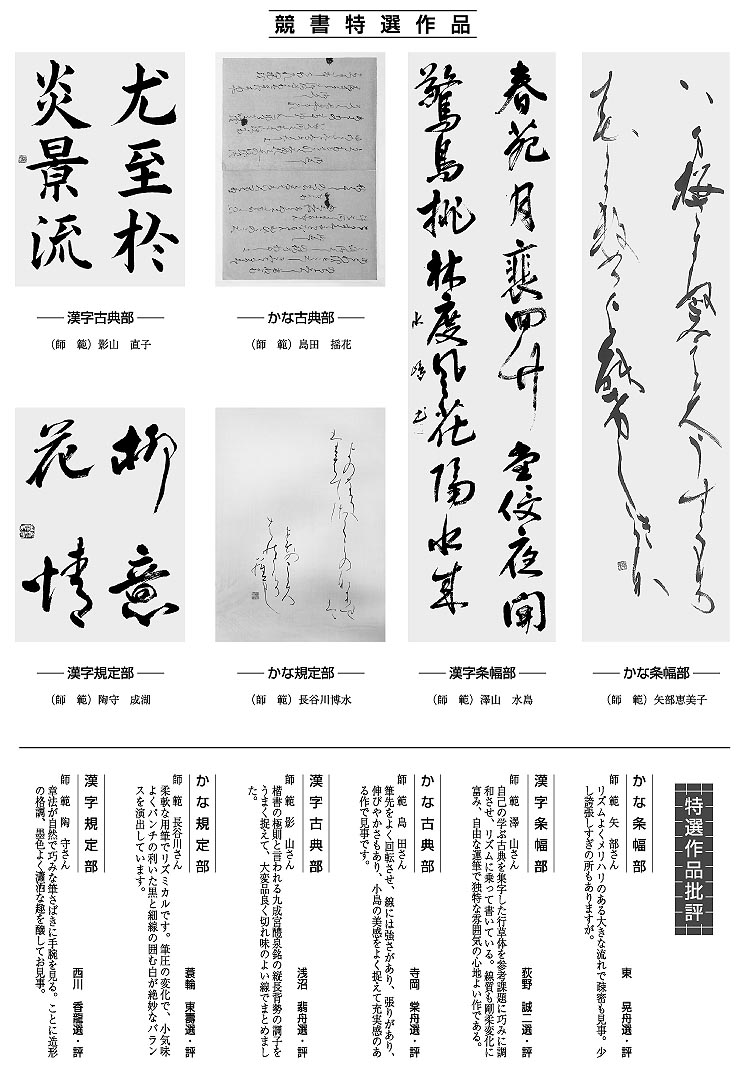 競書特選作品
尤至於
炎景流
漢字古典部
（師　範）影山　直子
かな古典部
（師　範）島田　揺花
春苑月裴回竹堂侵夜開
驚鳥排林度風花隔水来
漢字条幅部
（師　範）澤山　水島
かな条幅部
（師　範）矢部恵美子
柳意
花情
漢字規定部
（師　範）陶守　成湖
かな規定部
（師　範）長谷川博水
特選作品批評
かな条幅部
師　範　矢　部さん　東　晃舟選・評
リズムよくメリハリのある大きな流れで疎密も見事。少
し誇張しすぎの所もありますが。
漢字条幅部
師　範　澤　山さん　荻野　誠二選・評
自己の学ぶ古典を集字した行草体を参考課題に巧みに調
和させ、リズムに乗って書いている。線質も剛柔変化に
富み、自由な運筆で独特な雰囲気の心地よい作である。
かな古典部
師　範　島　田さん　寺岡　棠舟選・評
筆先をよく回転させ、線には強さがあり、張りがあり、
伸びやかさもあり、小島の美感をよく捉えて充実感のあ
る作で見事です。
漢字古典部
師　範　影　山さん　浅沼　翡舟選・評
楷書の極則と言われる九成宮醴泉銘の縦長背勢の調子を
うまく捉えて、大変品良く切れ味のよい線でまとめまし
た。
かな規定部
師　範　長谷川さん　蓑輪　東壽選・評
柔軟な用筆でリズミカルです。筆圧の変化で、小気味
よくパンチの利いた黒と細線の囲む白が絶妙なバラン
スを演出しています。
漢字規定部
師　範　陶　守さん　西川　香龍選・評
章法が自然で巧みな筆さばきに手腕を見る。ことに造形
の格調、墨色よく瀟洒な趣を醸してお見事。